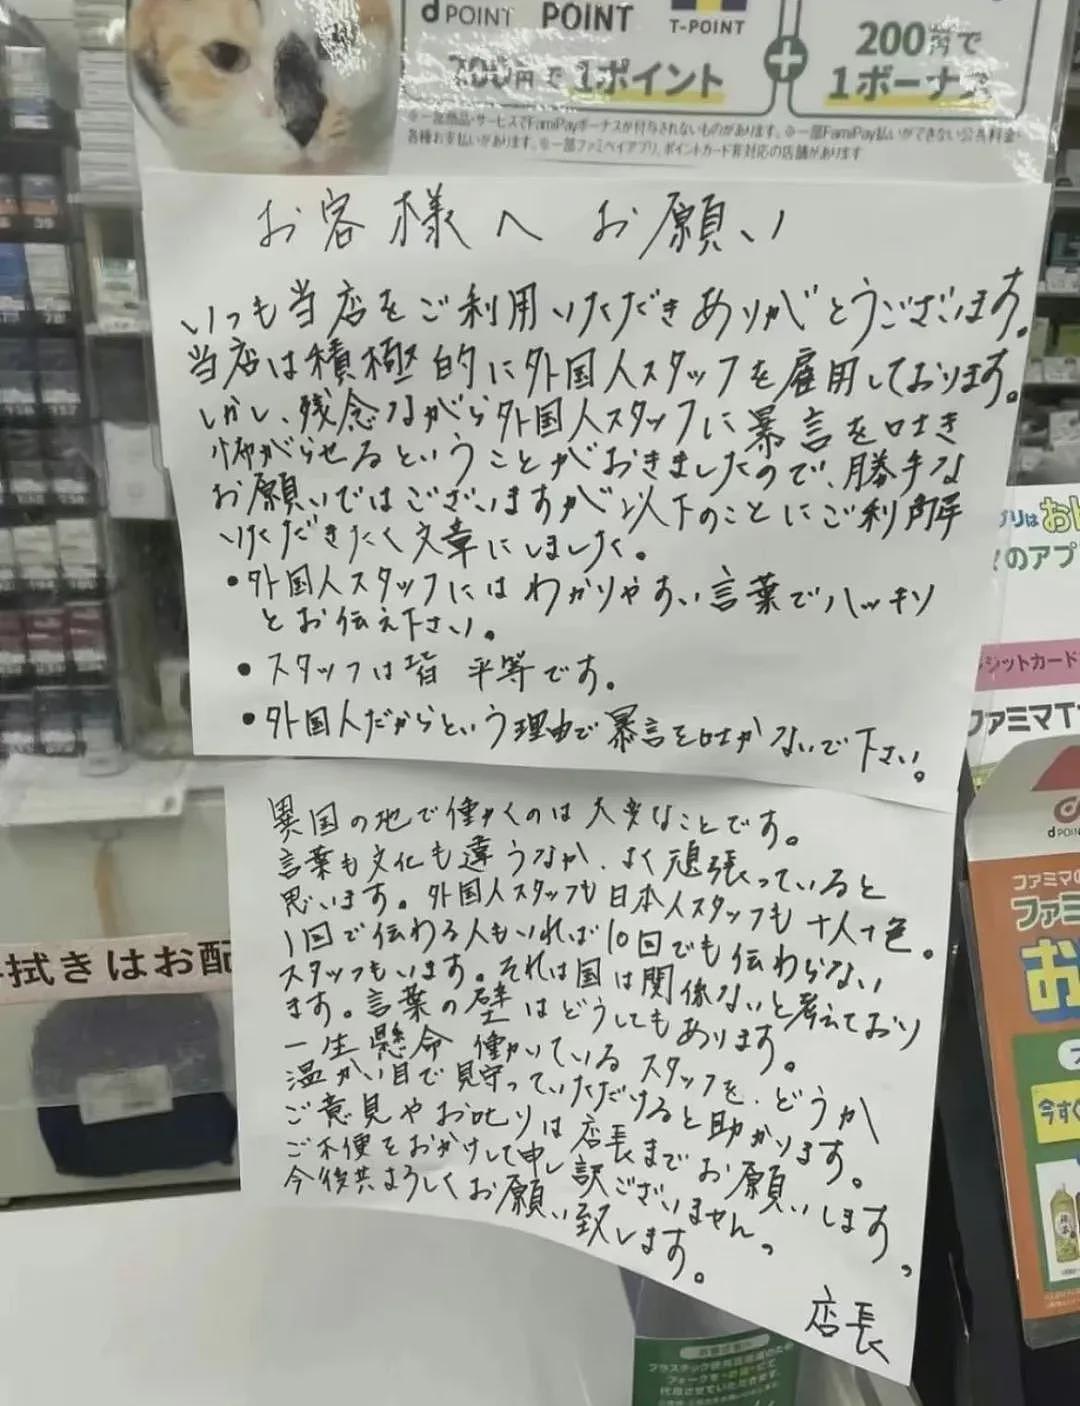 d POINT POINT T-POINT
200円で1ポイント
200円で
1ボーナス
※一部商品・サービスでFamiPayボーナスが付与されないものがあります。※一部FamiPay払いができない公共料金・
各種お支払いがあります。※一部ファミペイアプリ、ポイントカード非対応の店舗があります
お客様へ お願い
いつも当店をご利用いただきありがとうございます。
当店は積極的に外国人スタッフを雇用しております。
しかし、残念ながら外国人スタッフに暴言を吐き
怖がらせるということがおきましたので、勝手な
お願いではございますが以下のことにご利解
いただきたく文章にしました。
・外国人スタッフにはわかりやすい言葉でハッキリ
とお伝え下さい。
・スタッフは皆 平等です。
・外国人だからという理由で暴言を吐かないで下さい。
異国の地で働くのは大変なことです。
言葉も文化も違うなか、よく頑張っていると
思います。外国人スタッフも日本人スタッフも十人十色。
1回で伝わる人もいれば10回でも伝わらない
スタッフもいます。それは国は関係ないと考えており
ます。言葉の壁はどうしてもあります。
一生懸命働いているスタッフを、どうか
温かい目で見守っていただけると助かります。
ご意見やお叱りは店長までお願いします。
ご不便をおかけして申し訳ございません。
今後共よろしくお願い致します。
店長
拭きはお配
のアプ
ジットカード
ファミマT
d POIN
ファミマの
ファミ
お
今すぐ
プラスチック使用
フォークを
代用させていただきます。